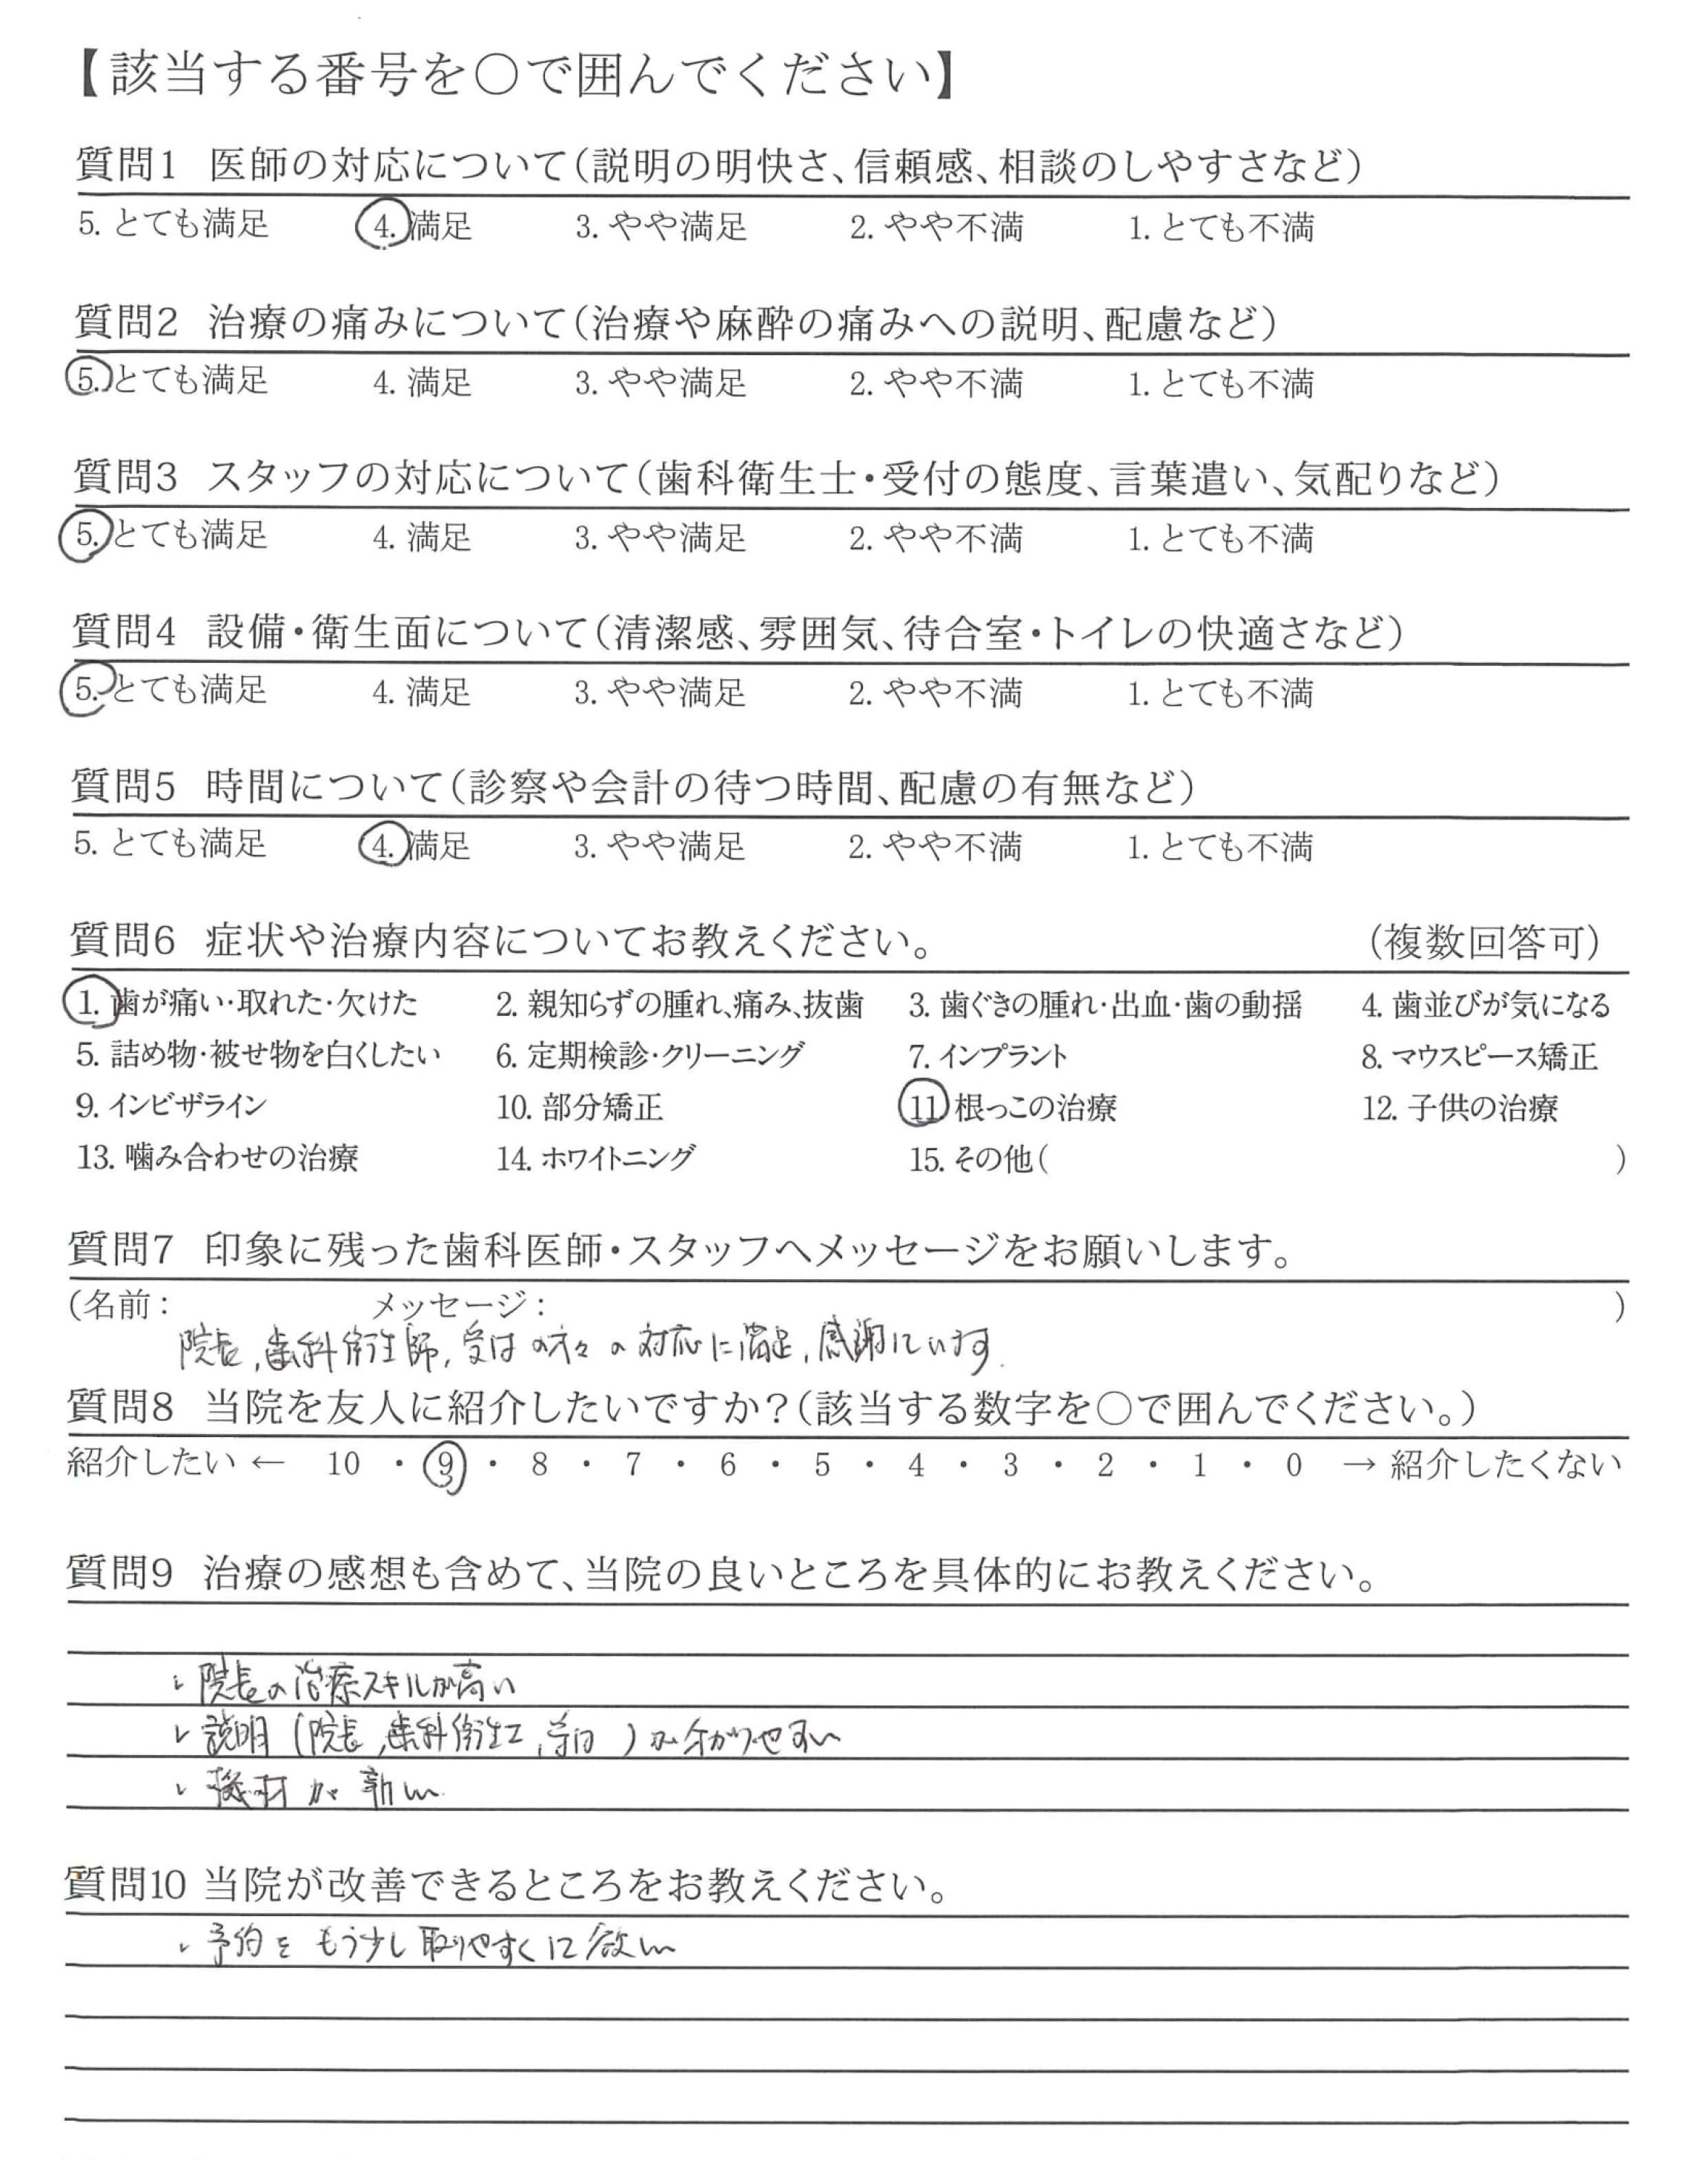 【該当する番号を○で囲んでください】
質問1 医師の対応について(説明の明快さ、信頼感、相談のしやすさなど)
5. とても満足 4. 満足 3. やや満足 2. やや不満 1. とても不満
質問2 治療の痛みについて(治療や麻酔の痛みへの説明、配慮など)
5. とても満足 4. 満足 3. やや満足 2. やや不満 1. とても不満
質問3 スタッフの対応について(歯科衛生士・受付の態度、言葉遣い、気配りなど)
5. とても満足 4. 満足 3. やや満足 2. やや不満 1. とても不満
質問4 設備・衛生面について(清潔感、雰囲気、待合室・トイレの快適さなど)
5. とても満足 4. 満足 3. やや満足 2. やや不満 1. とても不満
質問5 時間について(診察や会計の待つ時間、配慮の有無など)
5. とても満足 4. 満足 3. やや満足 2. やや不満 1. とても不満
質問6 症状や治療内容についてお教えください。 (複数回答可)
1. 歯が痛い・取れた・欠けた 2. 親知らずの腫れ、痛み、抜歯 3. 歯ぐきの腫れ・出血・歯の動揺 4. 歯並びが気になる
5. 詰め物・被せ物を白くしたい 6. 定期検診・クリーニング 7. インプラント 8. マウスピース矯正
9. インビザライン 10. 部分矯正 11 根っこの治療 12. 子供の治療
13. 噛み合わせの治療 14. ホワイトニング 15. その他( )
質問7 印象に残った歯科医師・スタッフへメッセージをお願いします。
(名前: メッセージ: )
院長,歯科衛生師,受付の方々の対応に満足,感謝しています.
質問8 当院を友人に紹介したいですか?(該当する数字を○で囲んでください。)
紹介したい ← 10 ・ 9 ・ 8 ・ 7 ・ 6 ・ 5 ・ 4 ・ 3 ・ 2 ・ 1 ・ 0 → 紹介したくない
質問9 治療の感想も含めて、当院の良いところを具体的にお教えください。
・院長の治療スキルが高い
・説明(院長,歯科衛生士, )が分かりやすい
・機材が新しい
質問10 当院が改善できるところをお教えください。
・予約をもう少し取りやすくして欲しい